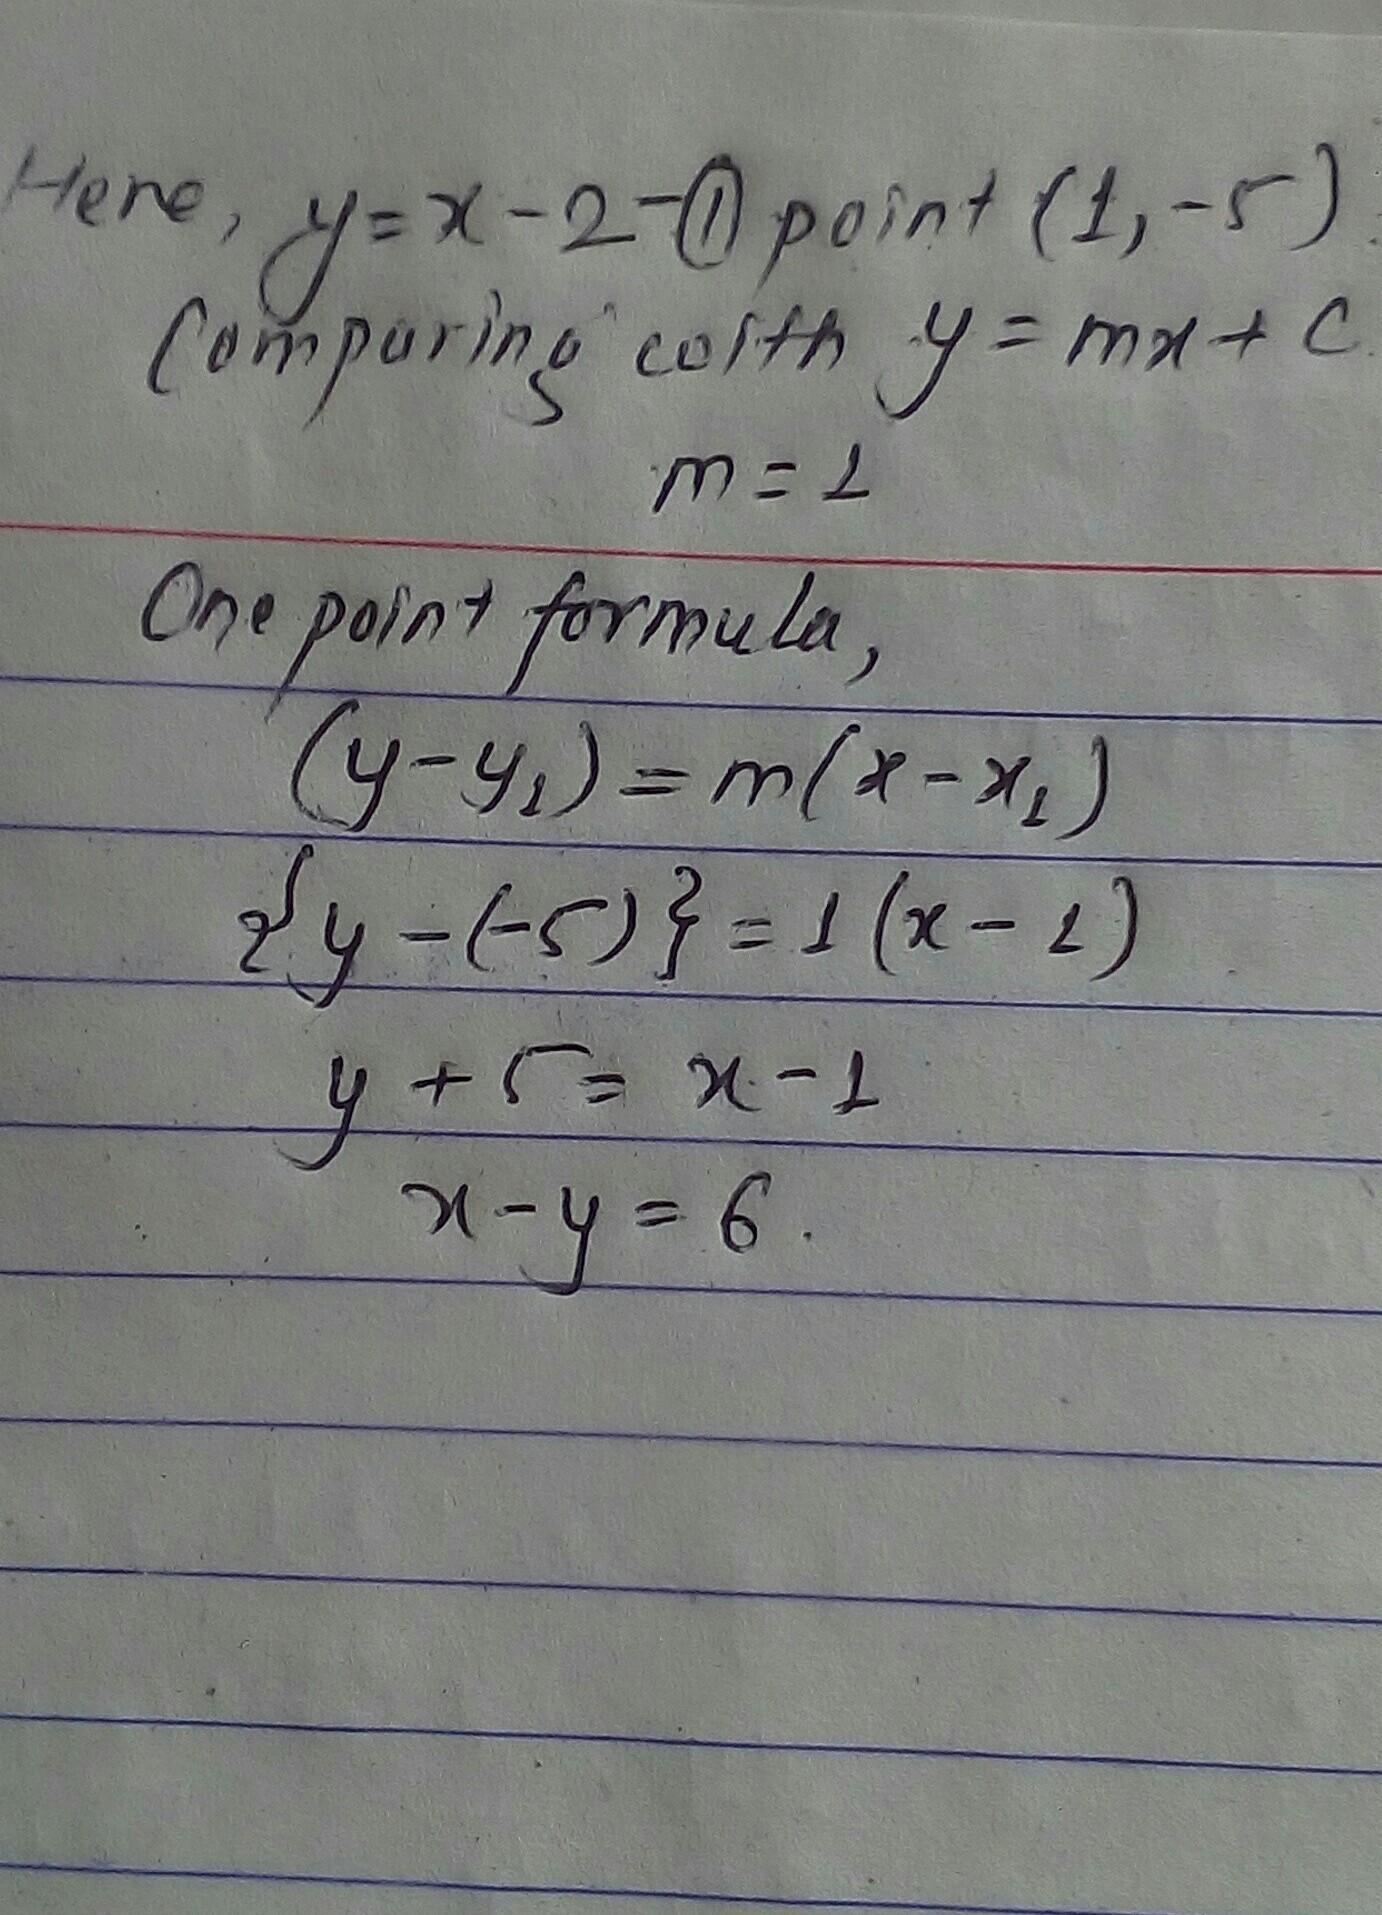 Here, y=x-2-① point (1,-5)
Comparing with y=mx+c
m=1
One point formula,
(y-y₁)=m(x-x₁)
{y-(-5)}=1(x-1)
y+5=x-1
x-y=6.